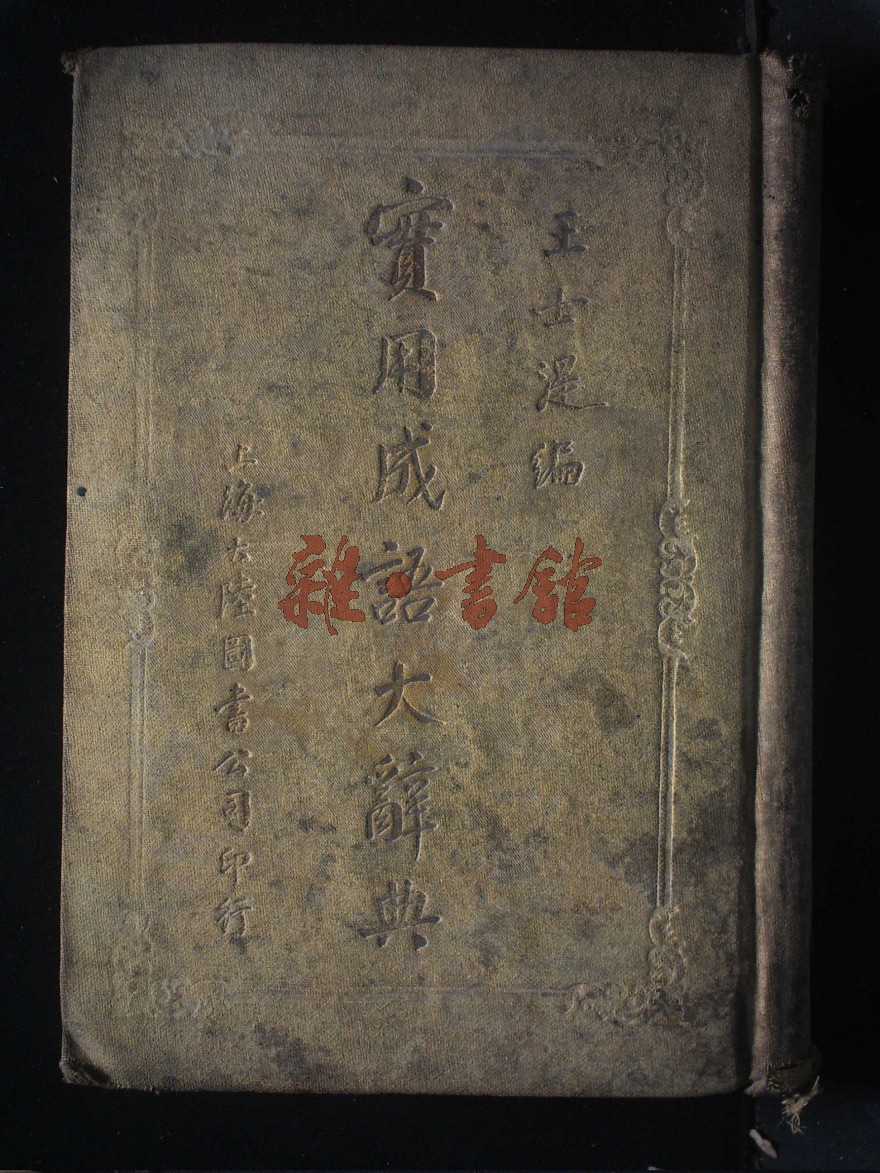 王士湜編
實用成語大辭典
上海大陸圖書公司印行
雜·書館